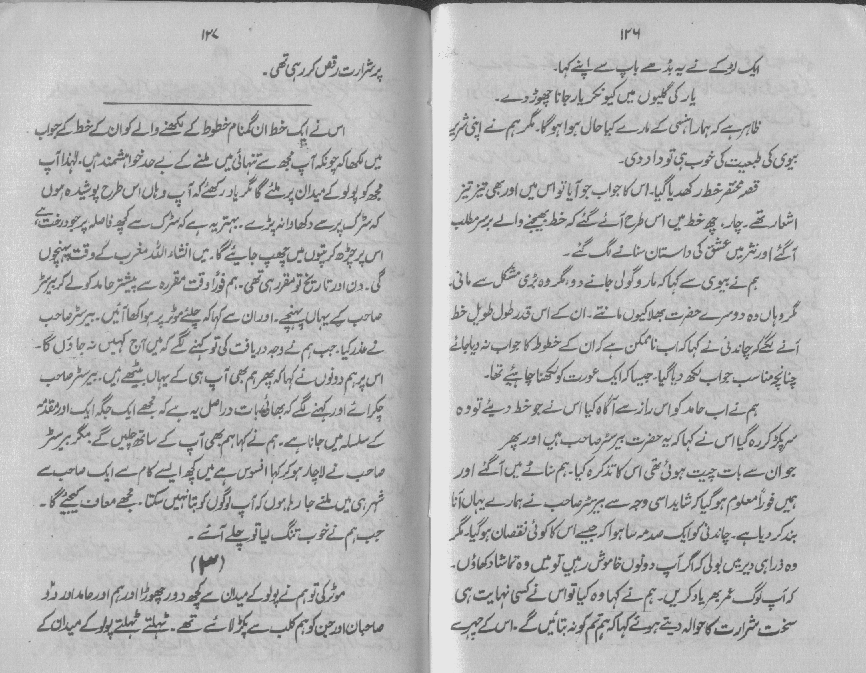 ۱۲۶
ایک لڑکے نے یہ بڈھے باپ سے اپنے کہا۔
یار کی گلیوں میں کیونکر یار جانا چھوڑ دے۔
ظاہر ہے کہ ہمارا ہنسی کے مارے کیا حال ہوا ہو گا۔ مگر ہم نے اپنی شریر
بیوی کی طبیعت کی خوب ہی تو داد دی۔
قصہ مختصر خط رکھ دیا گیا۔ اس کا جواب جو آیا تو اس میں اور بھی تیز تیز
اشعار تھے۔ چار، چھ خط میں اس طرح آئے گئے کہ خط بھیجنے والے برسر مطلب
آ گئے اور نثر میں عشق کی داستان سنانے لگ گئے۔
ہم نے بیوی سے کہا کہ مارو گولی جانے دو، مگر وہ بڑی مشکل سے مانی۔
مگر وہاں وہ دوسرے حضرت بھلا کیوں مانتے۔ ان کے اس قدر طول طویل خط
آنے لگے کہ چاندنی نے کہا کہ اب ناممکن ہے کہ ان کے خطوط کا جواب نہ دیا جائے
چنانچہ مناسب جواب لکھ دیا گیا۔ جیسا کہ ایک عورت کو لکھنا چاہیئے تھا۔
ہم نے اب حامد کو اس راز سے آگاہ کیا اس نے جو خط دیئے تو وہ
سر پکڑ کر رہ گیا اس نے کہا کہ یہ حضرت بیرسٹر صاحب ہیں اور پھر
جو ان سے بات چیت ہوئی تھی اس کا تذکرہ کیا۔ ہم سناٹے میں آ گئے اور
ہمیں فوراً معلوم ہو گیا کہ شاید اسی وجہ سے بیرسٹر صاحب نے ہمارے یہاں آنا
بند کر دیا ہے۔ چاندنی کو ایک صدمہ سا ہوا کہ جیسے اس کا کوئی نقصان ہو گیا۔ مگر
وہ ذرا ہی دیر میں بولی کہ اگر آپ دونوں خاموش رہیں تو میں وہ تماشا دکھاؤں۔
کہ آپ لوگ عمر بھر یاد کریں۔ ہم نے کہا وہ کیا تو اس نے کسی نہایت ہی
سخت شرارت کا حوالہ دیتے ہوئے کہا کہ ہم تم کو نہ بتائیں گے۔ اس کے چہرے
۱۲۷
پر شرارت رقص کر رہی تھی۔
اس نے ایک خط ان گمنام خطوط کے لکھنے والے کو ان کے خط کے جواب
میں لکھا کہ چونکہ آپ مجھ سے تنہائی میں ملنے کے بے حد خواہشمند ہیں۔ لہٰذا آپ
مجھ کو پولو کے میدان پر ملئے گا مگر یاد رکھئے کہ آپ وہاں اس طرح پوشیدہ ہوں
کہ سڑک پر سے دکھاوا نہ پڑے۔ بہتر یہ ہے کہ سڑک سے کچھ فاصلہ پر جو درخت ہے
اس پر چڑھ کر پتوں میں چھپ جایئے گا۔ میں انشاء اللہ مغرب کے وقت پہنچوں
گی۔ دن اور تاریخ تو مقرر ہی تھی۔ ہم فوراً وقت مقررہ سے پیشتر حامد کو لے کر بیرسٹر
صاحب کے یہاں پہنچے۔ اور ان سے کہا کہ چلئے موٹر پر ہوا کھا آئیں۔ بیرسٹر صاحب
نے عذر کیا۔ جب ہم نے وجہ دریافت کی تو کہنے لگے کہ میں آج کہیں نہ جاؤں گا۔
اس پر ہم دونوں نے کہا کہ پھر ہم بھی آپ ہی کے یہاں بیٹھے ہیں۔ بیرسٹر صاحب
چکرائے اور کہنے لگے کہ بھائی بات دراصل یہ ہے کہ مجھے ایک جگہ ایک اور مقدمہ
کے سلسلہ میں جانا ہے۔ ہم نے کہا ہم بھی آپ کے ساتھ چلیں گے مگر بیرسٹر
صاحب نے لاچار ہو کر کہا افسوس ہے میں کچھ ایسے کام سے ایک صاحب سے
شہر ہی میں ملنے جا رہا ہوں کہ آپ لوگوں کو بتا نہیں سکتا۔ مجھے معاف کیجئے گا۔
جب ہم نے خوب تنگ کر لیا تو چلے آئے۔
(۳)
موٹر کی تو ہم نے پولو کے میدان سے کچھ دور چھوڑا اور ہم اور حامد اور دو
صاحبان اور جن کو ہم کلب سے پکڑ لائے تھے۔ ٹہلتے ٹہلتے پولو کے میدان کے